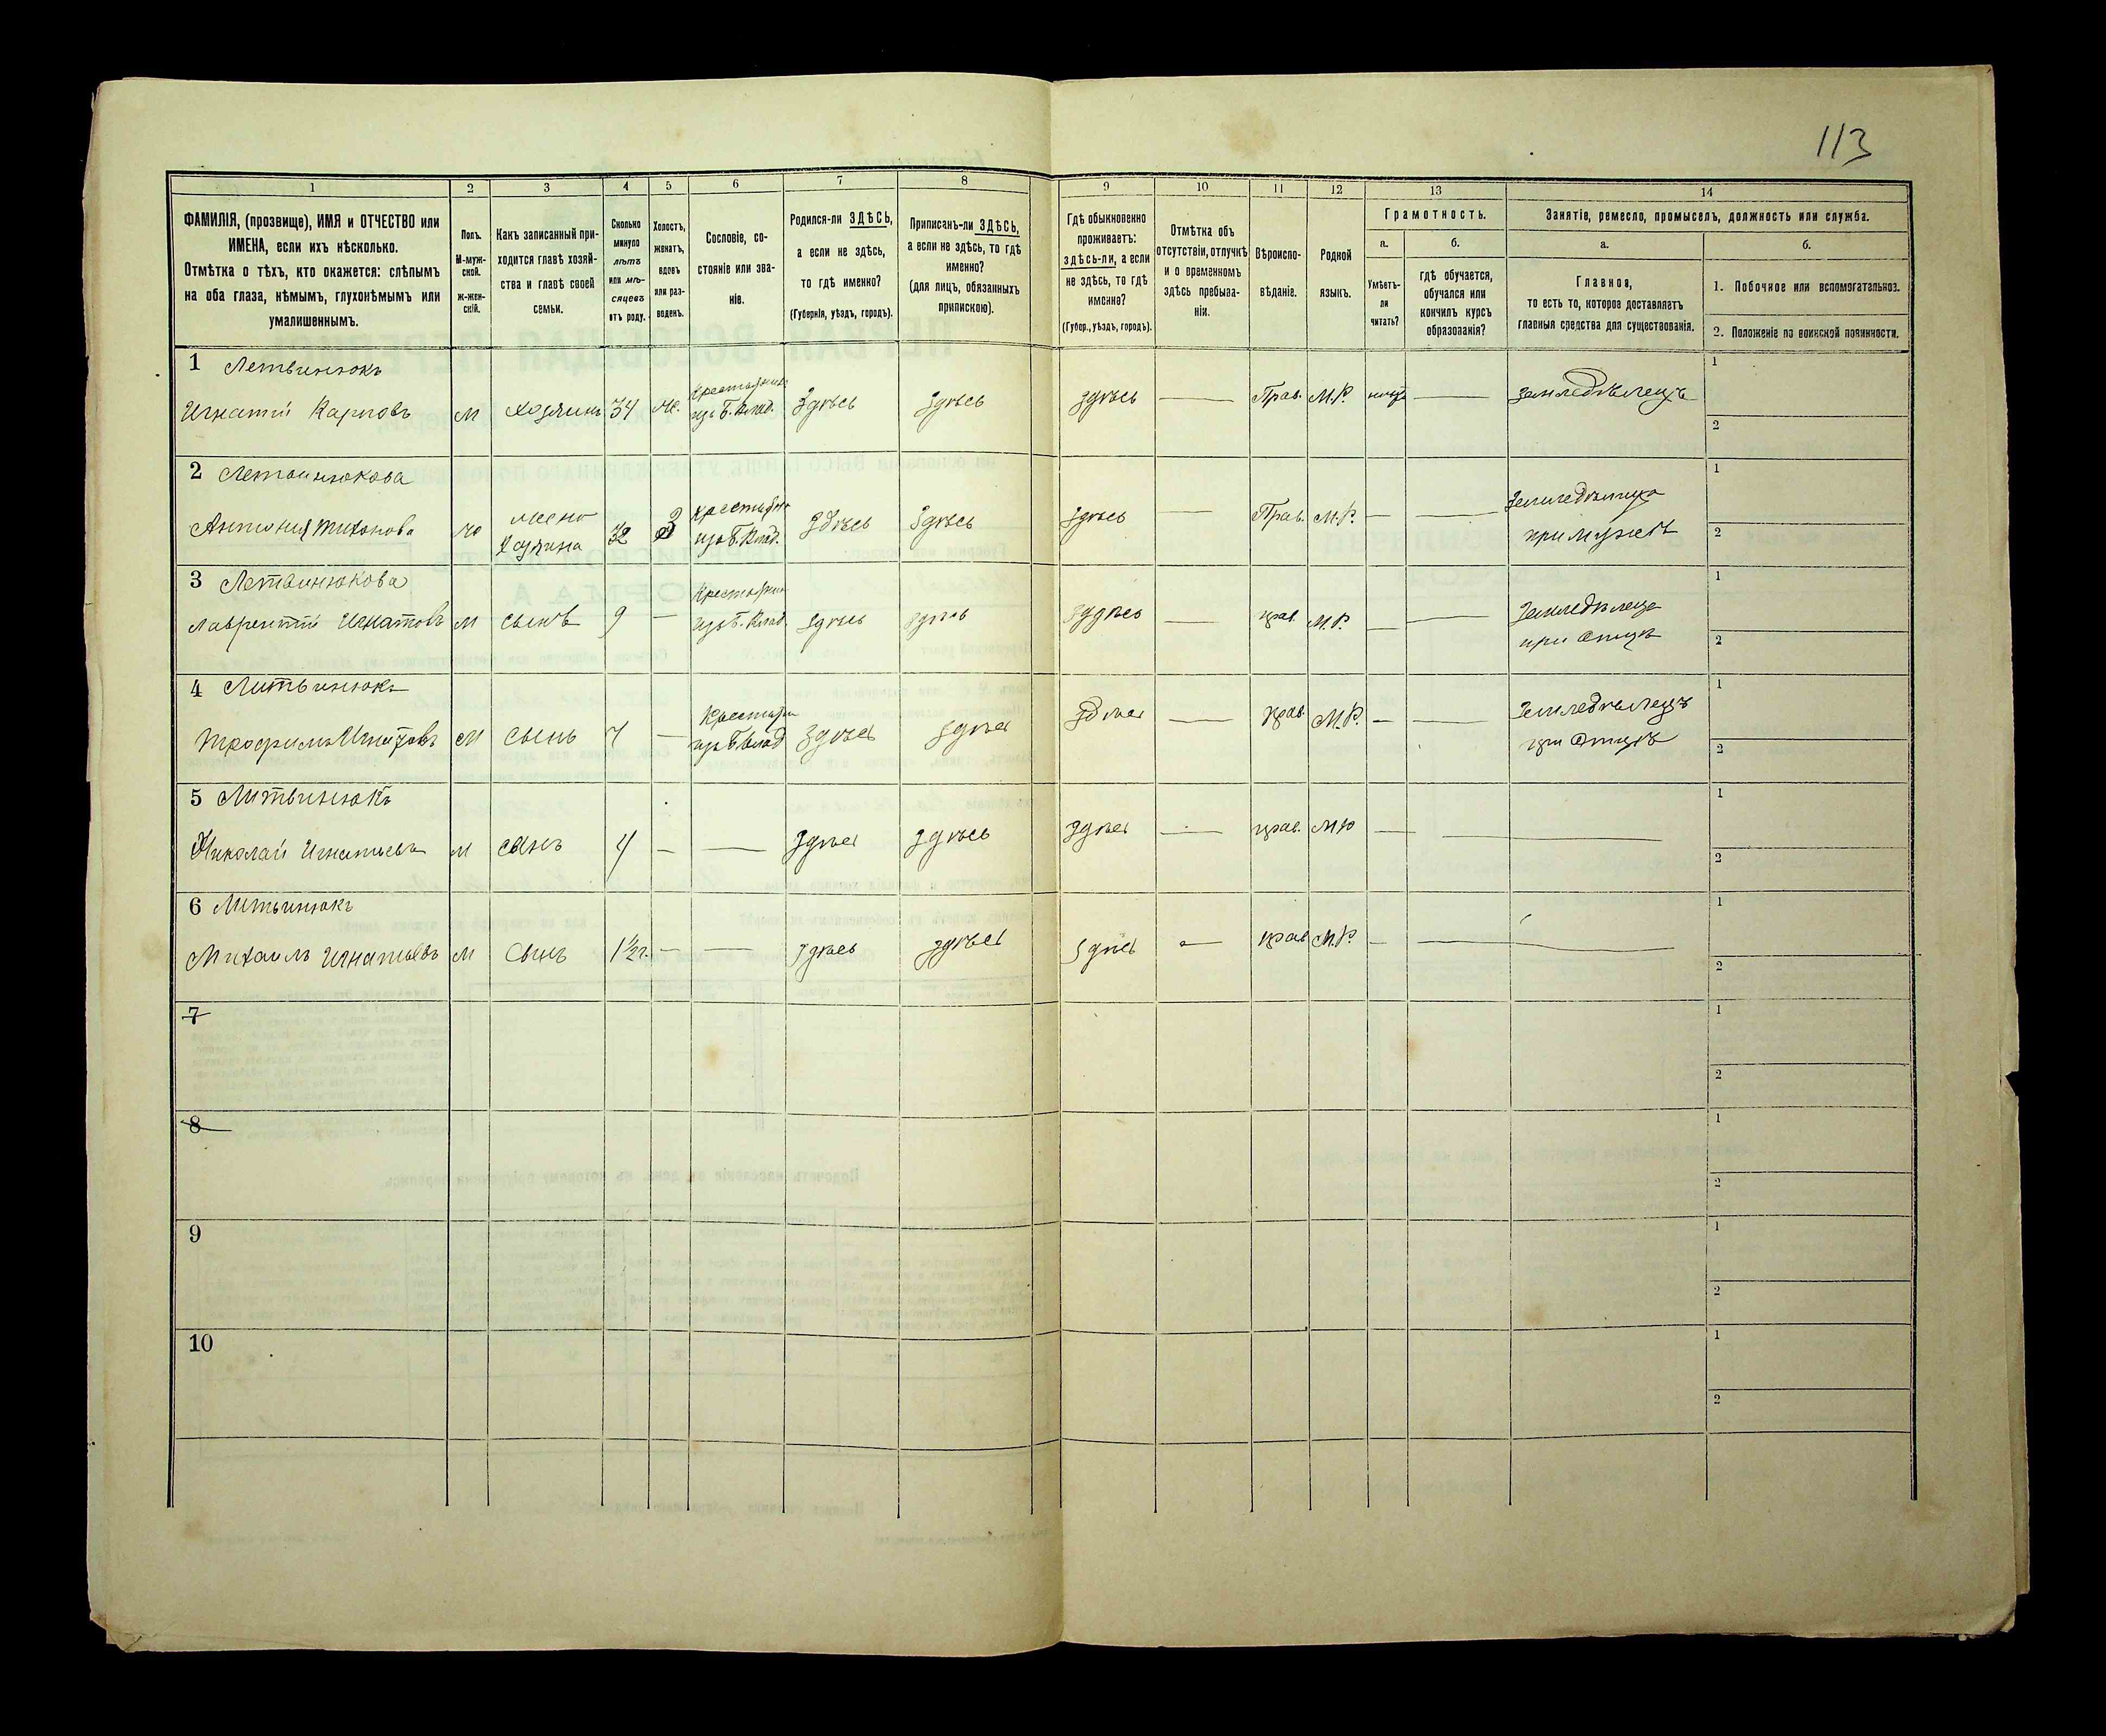 113
1 2 3 4 5 6 7 8 9 10 11 12 13 14
ФАМИЛІЯ, (прозвище), ИМЯ и ОТЧЕСТВО или
ИМЕНА, если ихъ нѣсколько.
Отмѣтка о тѣхъ, кто окажется: слѣпымъ
на оба глаза, нѣмымъ, глухонѣмымъ или
умалишеннымъ.
Полъ.
М-муж-
ской.
ж-жен-
скій.
Какъ записанный при-
ходится главѣ хозяй-
ства и главѣ своей
семьи.
Сколько
минуло
лѣтъ
или мѣ-
сяцевъ
отъ роду.
Холостъ,
женатъ,
вдовъ
или раз-
веденъ.
Сословіе, со-
стояніе или зва-
ніе.
Родился-ли ЗДѢСЬ,
а если не здѣсь,
то гдѣ именно?
(Губернія, уѣздъ, городъ).
Приписанъ-ли ЗДѢСЬ,
а если не здѣсь, то гдѣ
именно?
(для лицъ, обязанныхъ
припискою).
Гдѣ обыкновенно
проживаетъ:
здѣсь-ли, а если
не здѣсь, то гдѣ
именно?
(Губер., уѣздъ, городъ).
Отмѣтка объ
отсутствіи, отлучкѣ
и о временномъ
здѣсь пребыва-
ніи.
Вѣроиспо-
вѣданіе.
Родной
языкъ.
Грамотность.
а.
Умѣетъ-
ли
читать?
б.
гдѣ обучается,
обучался или
кончилъ курсъ
образованія?
Занятіе, ремесло, промыселъ, должность или служба.
а.
Главное,
то есть то, которое доставляетъ
главныя средства для существованія.
б.
1. Побочное или вспомогательное.
2. Положеніе по воинской повинности.
1 Летвинюкъ
Игнатій Карповъ м хозяинъ 34 же. крестьянинъ
изъ б. влад. Здѣсь Здѣсь здѣсь — Прав. М.Р. — земледѣлецъ
1
2
2 Летвинюкова
Антонія Тихонова ж жена
хозяина 32 З крестьянка
изъ б. влад. Здѣсь Здѣсь Здѣсь Прав. М.Р. — —
при мужѣ
1
2
3 Летвинюкова
Лаврентій Игнатовъ м сынъ 9 — крестьянин
изъ б. влад. Здѣсь здѣсь здѣсь — прав. М.Р. — — Земледѣлеца
при отцѣ
1
2
4 Литвинюкъ
Трофимъ Игнатовъ м сынъ 7 — Крестьян
изъ б. влад Здѣсь Здѣсь здѣсь — прав. М.Р. — — Земледѣлецъ
при отцѣ
1
2
5 Литвинюкъ
Николай Игнатьевъ м сынъ 4 — — Здѣсь здѣсь здѣсь — прав. — —
1
2
6 Литвинюкъ
Михаилъ Игнатьевъ м Сынъ 1½г. — — здѣсь здѣсь здѣсь — прав М.Р. — —
1
2
7
1
2
8
1
2
9
1
2
10
1
2